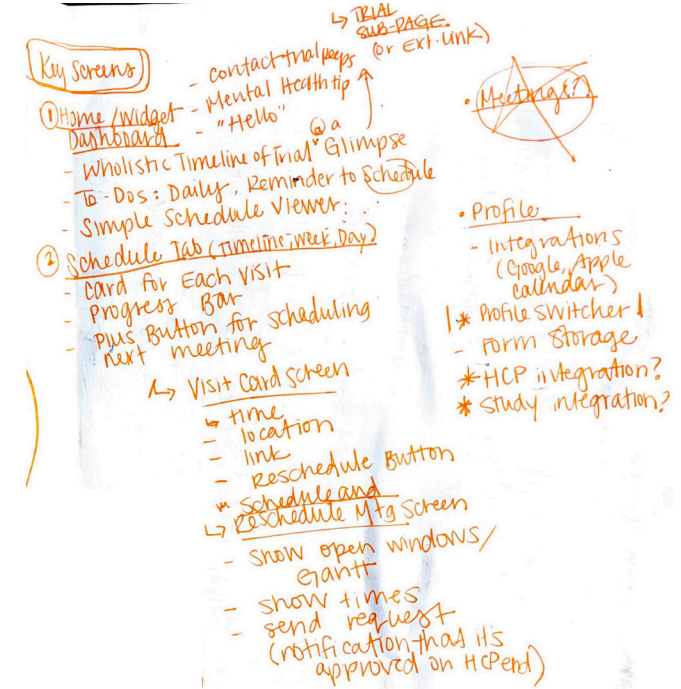 ↳ TRIAL
SUB-PAGE
(or Ext. Link)
Key Screens
- contact trial peeps
- Mental Health tip
- "Hello"
① Home/Widget
Dashboard
- Wholistic Timeline of Trial @ a Glimpse
- To-Dos: Daily, Reminder to Schedule
- Simple Schedule Viewer:
② Schedule Tab (Timeline, Week, Day)
- Card for Each Visit
- Progress Bar
- Plus Button for scheduling
next meeting
↳ Visit Card Screen
↳ time
- location
- link
- Reschedule Button
* schedule and
↳ Reschedule Mtg Screen
- show open windows/
Gantt
- show times
- send request
(notification that its
approved on HCP end)
• Meetings(?)
• Profile
- Integrations
(Google, Apple
calendar)
!* Profile Switcher !
- Form Storage
* HCP integration?
* Study integration?